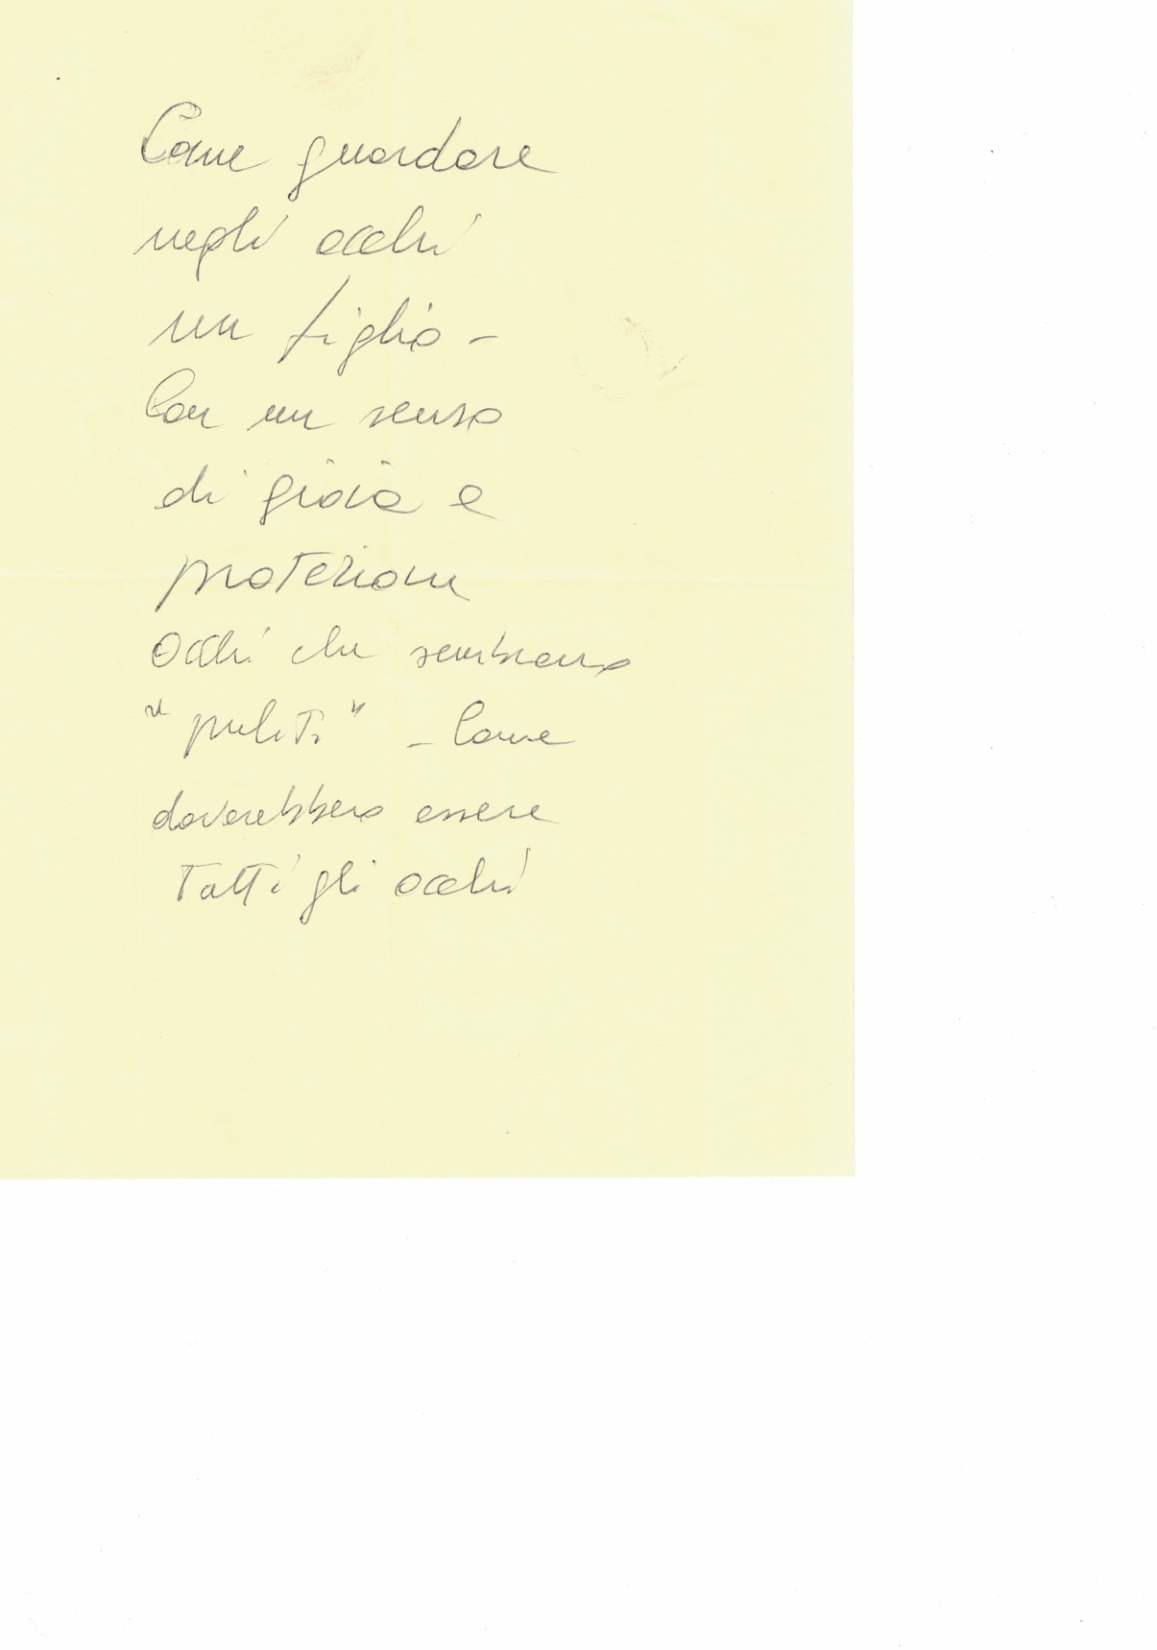 Come guardare
negli occhi
un figlio -
Con un senso
di gioia e
protezione
Occhi che sembrano
"puliti" - Come
doverebbero essere
Tutti gli occhi